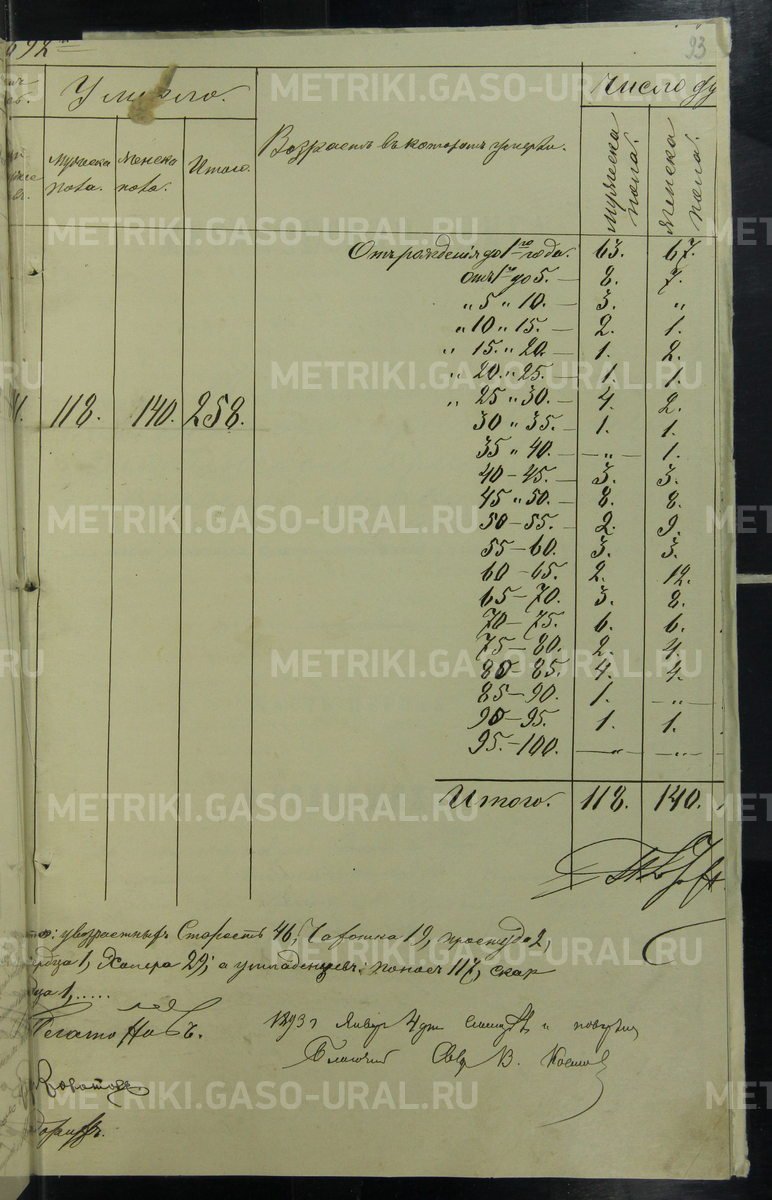 892
23
Умерло.
Число ду
Мужеска пола.
Женска пола.
Итого.
Возрастъ въ которомъ умерли.
мужеска пола.
женска пола.
118. 140. 258.
Отъ рожденія до 1го года. 63. 67.
отъ 1 до 5. — 8. 7.
„ 5 „ 10. — 3. „
„ 10 „ 15. — 2. 1.
„ 15. „ 20. — 1. 2.
„ 20. „ 25. 1. 1.
„ 25 „ 30. — 4. 2.
30 „ 35. — 1. 1.
35 „ 40. — „ — 1.
40 — 45. — 3. 3.
45 „ 50. — 8. 8.
50 — 55. — 2. 9.
55 — 60. 3. 3.
60 — 65. 2. 12.
65 — 70. 3. 8.
70 — 75. 6. 6.
75 — 80. 2. 4.
80 — 85. 4. 4.
85 — 90. 1. — „ —
90 — 95. 1. 1.
95. — 100. — „ — — „ —
Итого. 118. 140.
у возрастныхъ Старость 46, Чахотка 19, простуда 2,
1, Холера 29; а у младенцевъ: поносъ 117, скар
1, ......
1893 г Январ 4 дня
METRIKI.GASO-URAL.RU